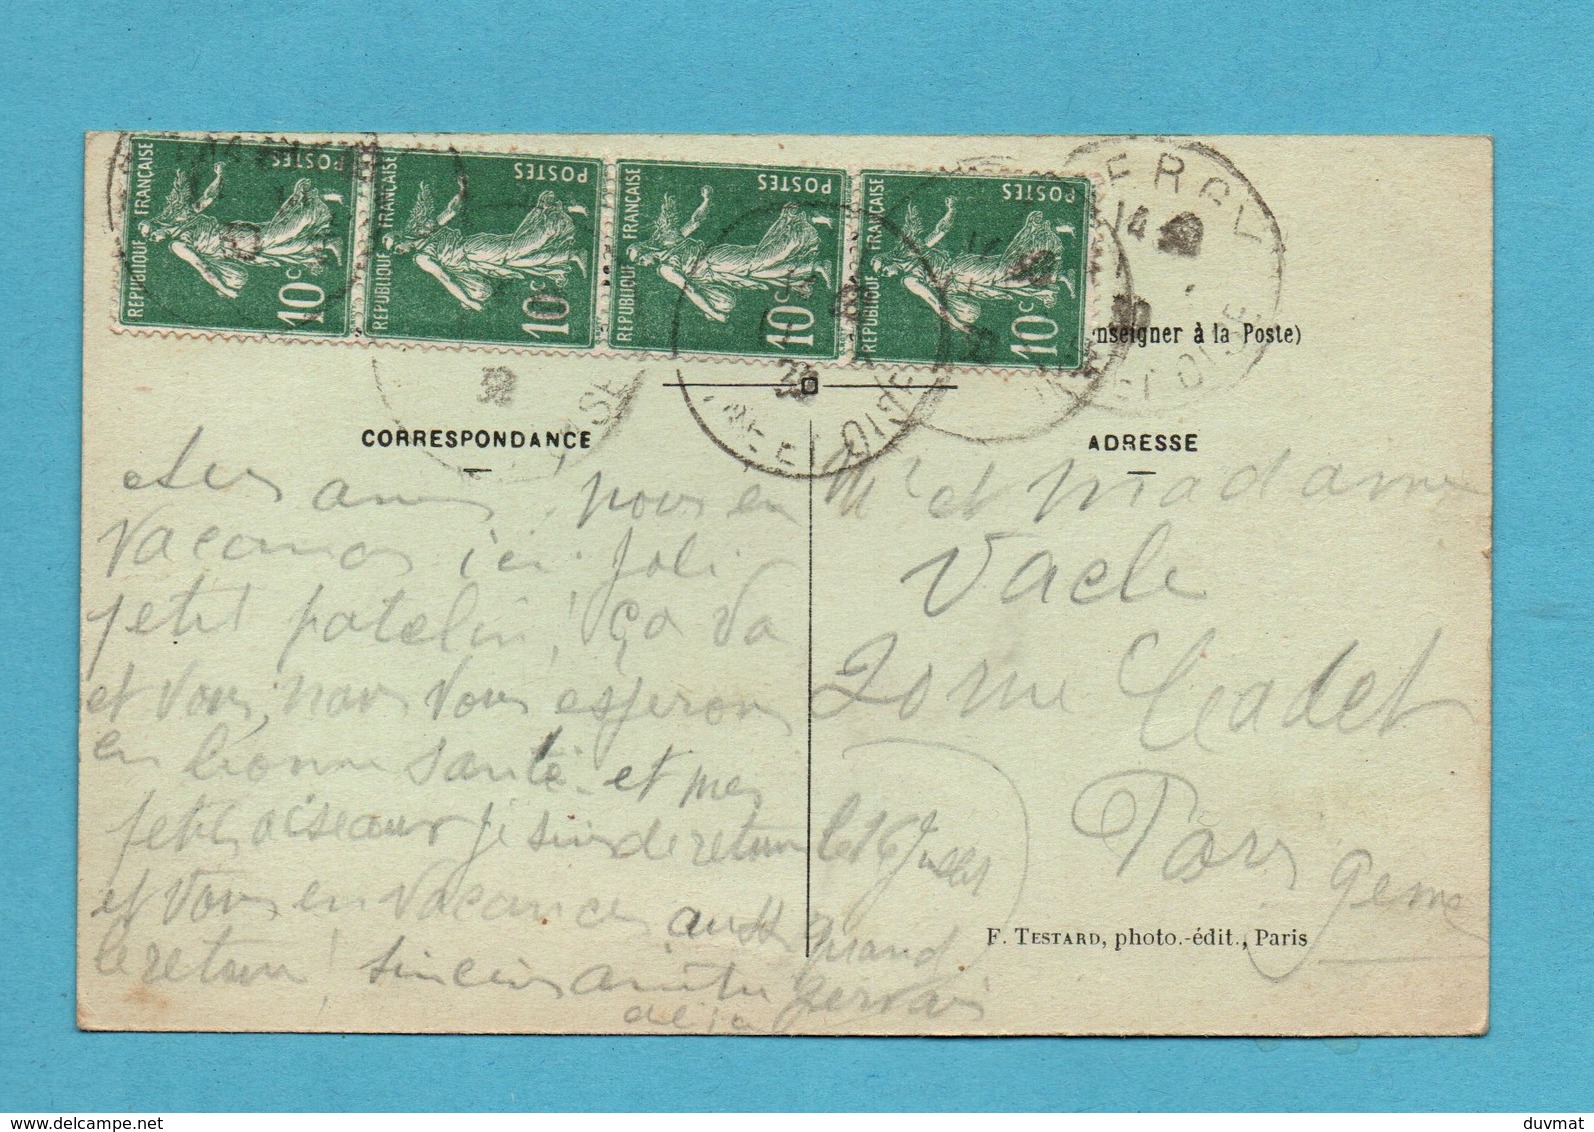 RÉPUBLIQUE FRANÇAISE POSTES 10c
RÉPUBLIQUE FRANÇAISE POSTES 10c
RÉPUBLIQUE FRANÇAISE POSTES 10c
RÉPUBLIQUE FRANÇAISE POSTES 10c
nseigner à la Poste)
CORRESPONDANCE
amis pour en
vacances ici joli
petit patelin! ça va
et vous, nous vous esperons
en bonne santé et mes
petits oiseaux je suis de retour le 16 Juillet
et vous en vacances aussi quand
le retour! sincères amitiés
Gervais
ADRESSE
Mr et Madame
Vacle
20 rue Cadet
Paris
9eme
F. TESTARD, photo.-édit., Paris
duvmat